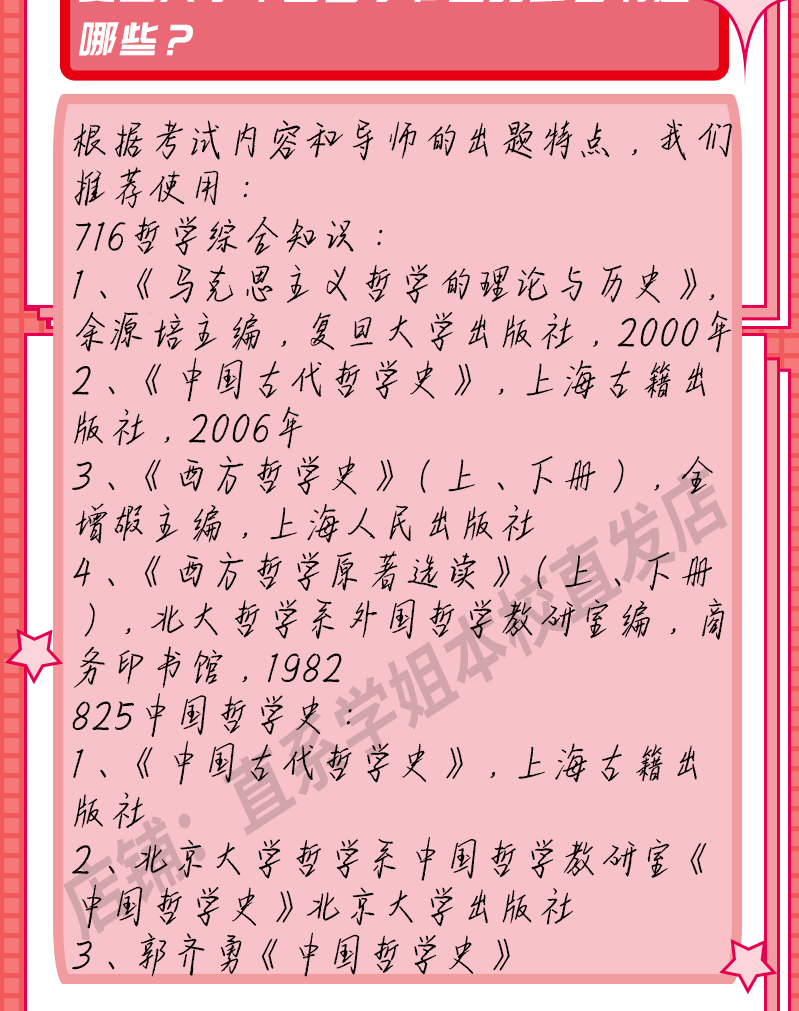 哪些？
根据考试内容和导师的出题特点，我们
推荐使用：
716哲学综合知识：
1、《马克思主义哲学的理论与历史》，
余源培主编，复旦大学出版社，2000年
2、《中国古代哲学史》，上海古籍出
版社，2006年
3、《西方哲学史》（上、下册），全
增嘏主编，上海人民出版社
4、《西方哲学原著选读》（上、下册
），北大哲学系外国哲学教研室编，商
务印书馆，1982
825中国哲学史：
1、《中国古代哲学史》，上海古籍出
版社
2、北京大学哲学系中国哲学教研室《
中国哲学史》北京大学出版社
3、郭齐勇《中国哲学史》
店铺：直系学姐本校直发店